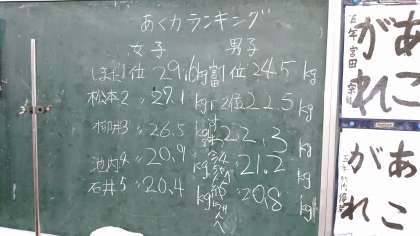 あく力ランキング
女子 男子
しまだ1位 29.6kg 1位 24.5 kg
松本2〃 27.1 kg 2位 22.5 kg
柳井3〃 26.5 kg 22.3 kg
池内4〃 20.9 kg 21.2 kg
石井5〃 20.4 kg 5〃 20.8 kg
あこがれ
五年 宮田
あこがれ